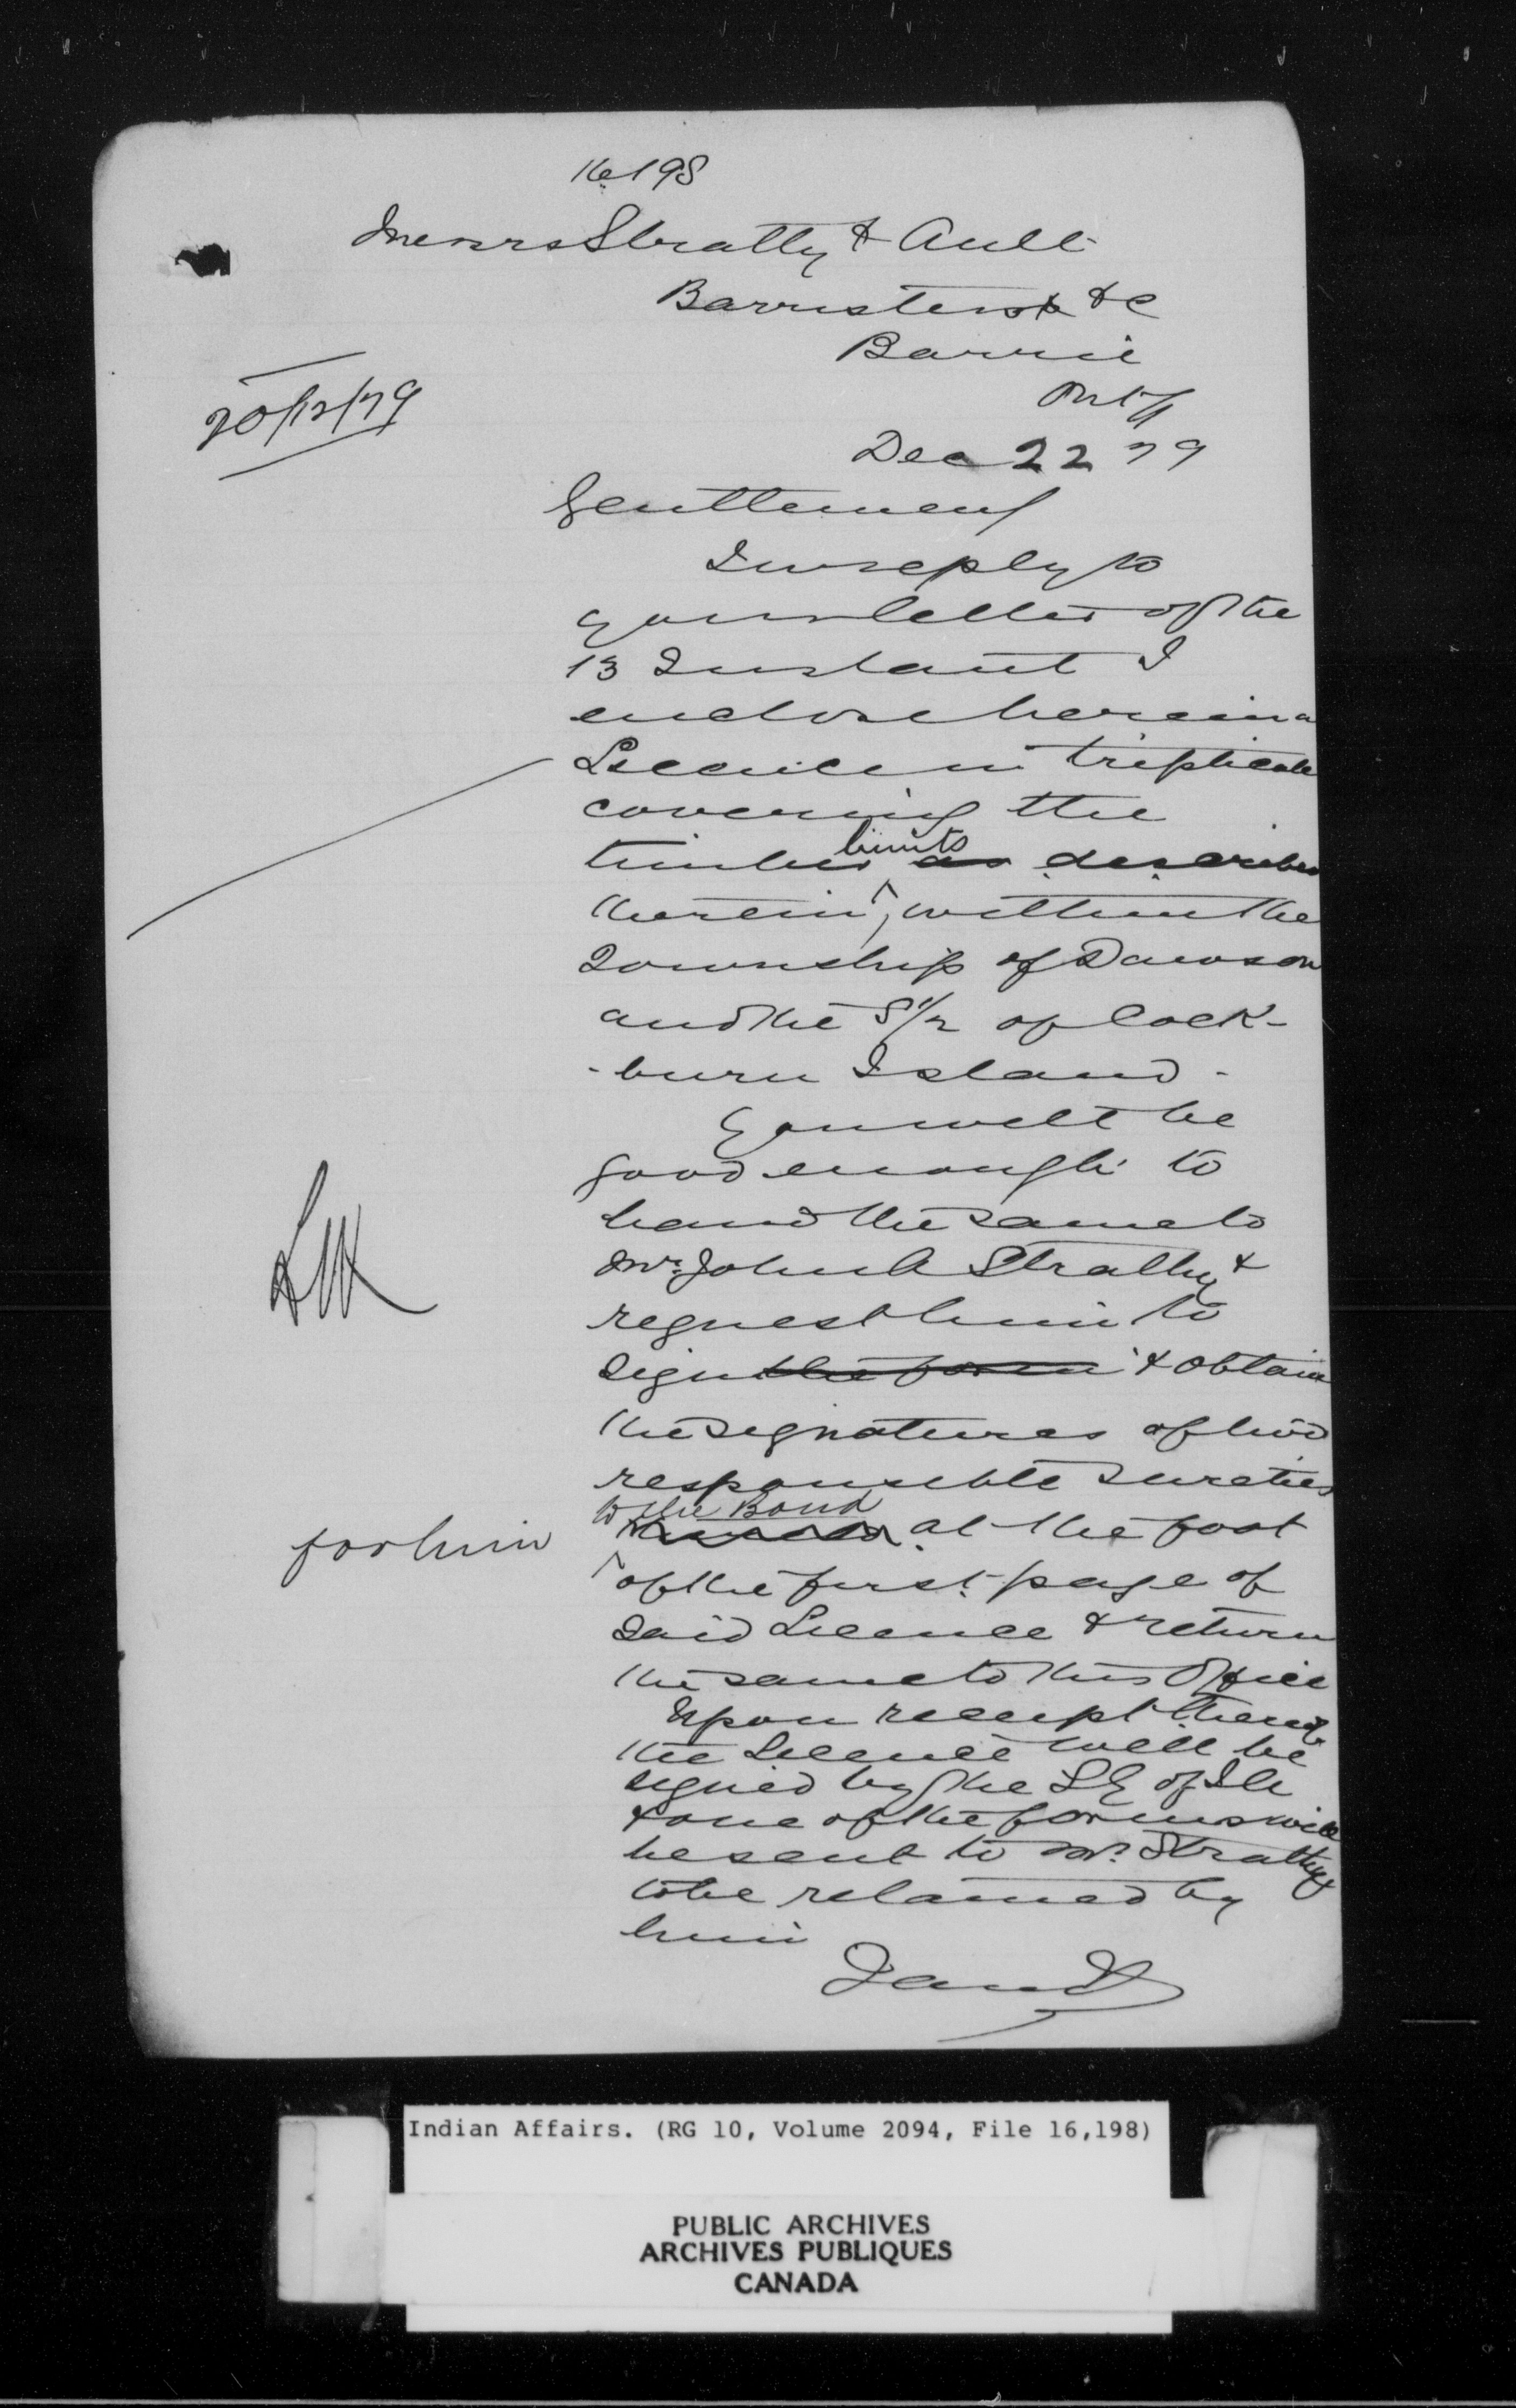 16198
Messrs Strathy & Ault
Barristers &c
Barrie
Ont
20/12/79
Dec 22 79
Gentlemen
In reply to
your letter of the
13 Instant I
enclose herein a
Licence in triplicate
covering the
limits
timber as described
therein, within the
Township of Dawson
and the S 1/2 of Cock-
-burn Island -
You will be
good enough to
hand the same to
Mr. John A Strathy &
request him to
sign the form & obtain
the signatures of two
responsible sureties
to the Bond
for him
at the foot
of the first page of
said Licence & return
the same to this Office
Upon receipt thereof
the Licence will be
signed by the S G of I A
& one of the forms will
be sent to Mr. Strathy
to be retained by
him
Indian Affairs. (RG 10, Volume 2094, File 16,198)
PUBLIC ARCHIVES
ARCHIVES PUBLIQUES
CANADA